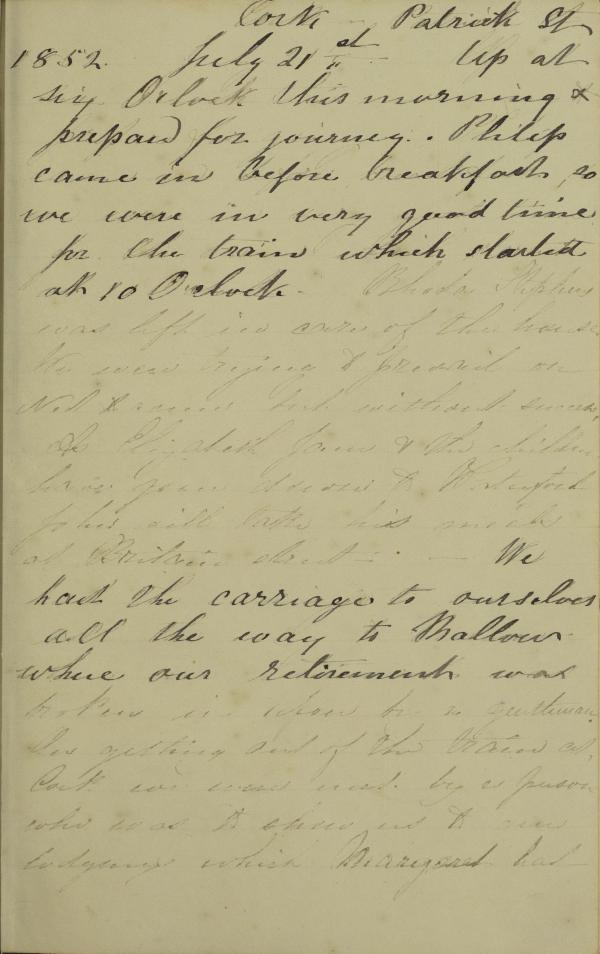 Cork Patrick St
1852. July 21st Up at
six O'clock this morning &
prepared for journey. Philip
came in before breakfast, so
we were in very good time
for the train which started
at 10 O'clock - Rhoda
was left in care of the house
We were trying to prevail on
Ned to come but without success,
As Elizabeth Jane & the children
have gone down to Waterford
John will take his meals
at Britain street - . - We
had the carriage to ourselves
all the way to Mallow
where our retirement was
broken in upon by a gentleman
On getting out of the train at
Cork we were met by a person
who was to show us to our
lodgings which Margaret had